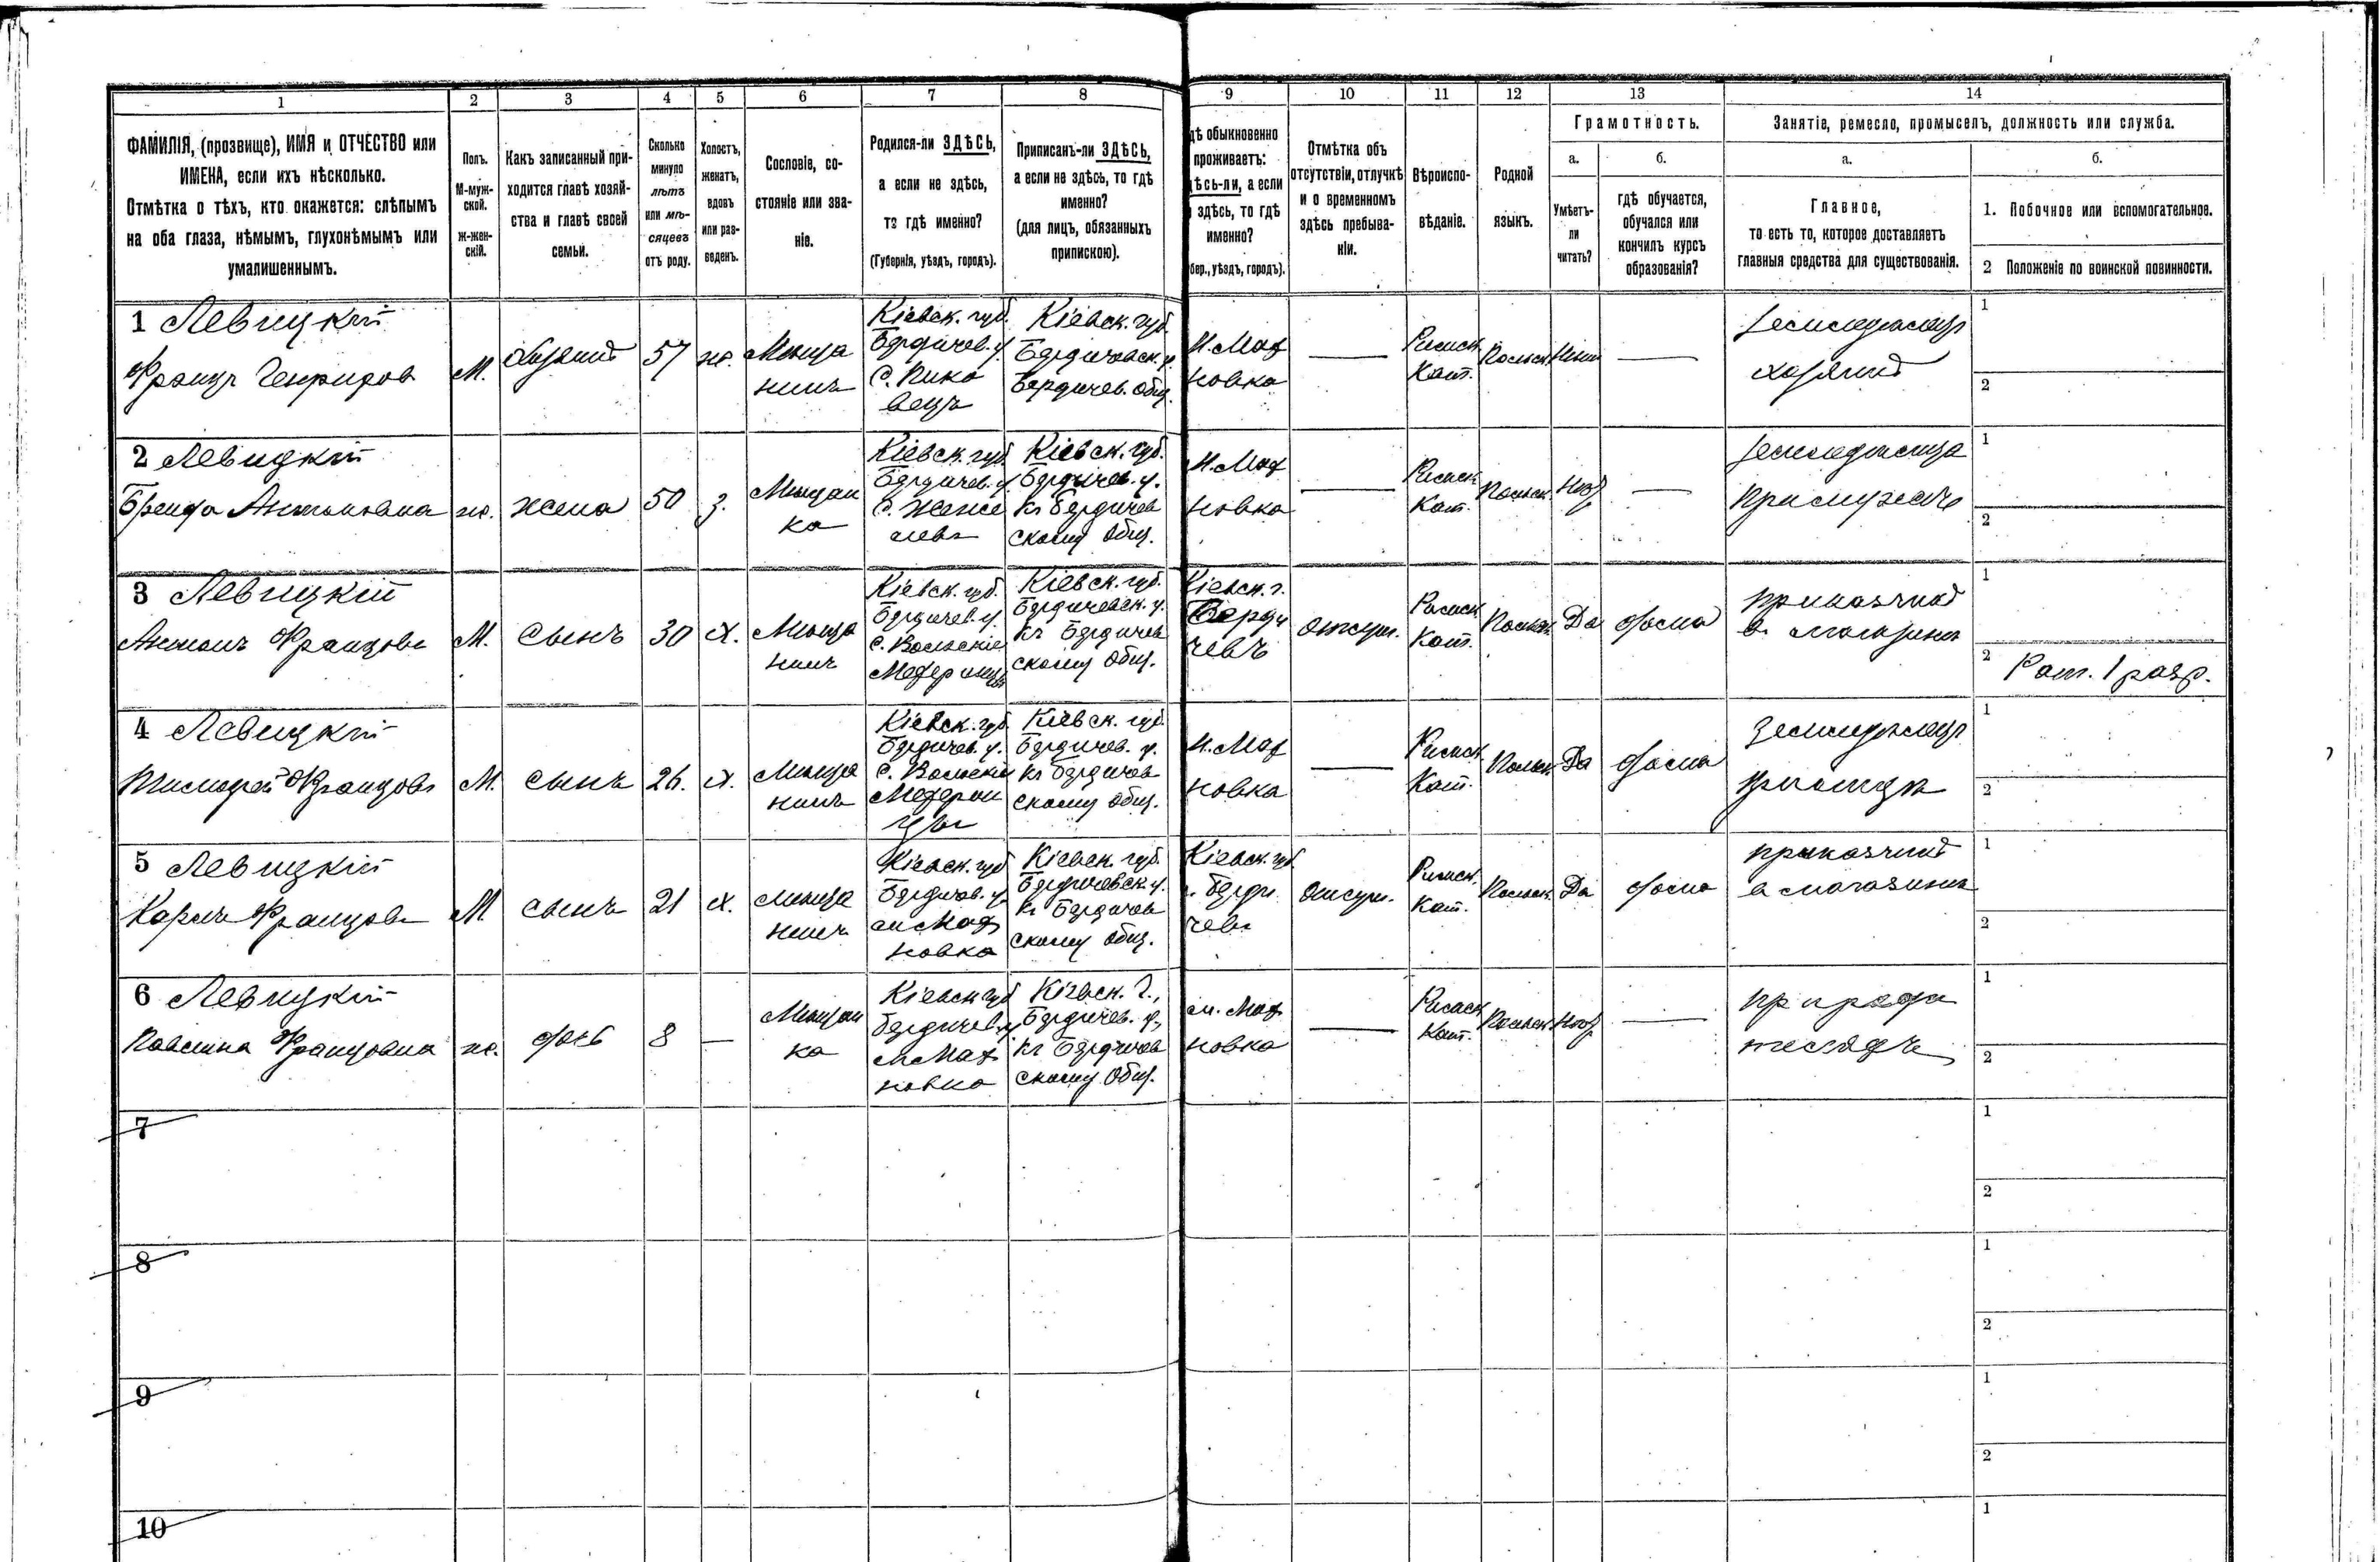 1 2 3 4 5 6 7 8 9 10 11 12 13 14
ФАМИЛІЯ, (прозвище), ИМЯ и ОТЧЕСТВО или
ИМЕНА, если ихъ нѣсколько.
Отмѣтка о тѣхъ, кто окажется: слѣпымъ
на оба глаза, нѣмымъ, глухонѣмымъ или
умалишеннымъ.
Полъ.
М-муж-
ской.
ж-жен-
скій.
Какъ записанный при-
ходится главѣ хозяй-
ства и главѣ своей
семьи.
Сколько
минуло
лѣтъ
или мѣ-
сяцевъ
отъ роду.
Холостъ,
женатъ,
вдовъ
или раз-
веденъ.
Сословіе, со-
стояніе или зва-
ніе.
Родился-ли ЗДѢСЬ,
а если не здѣсь,
то гдѣ именно?
(Губернія, уѣздъ, городъ).
Приписанъ-ли ЗДѢСЬ,
а если не здѣсь, то гдѣ
именно?
(для лицъ, обязанныхъ
припискою).
дѣ обыкновенно
проживаетъ:
ѣсь-ли, а если
здѣсь, то гдѣ
именно?
бер., уѣздъ, городъ).
Отмѣтка объ
отсутствіи, отлучкѣ
и о временномъ
здѣсь пребыва-
ніи.
Вѣроиспо-
вѣданіе.
Родной
языкъ.
Грамотность.
а.
Умѣетъ-
ли
читать?
б.
гдѣ обучается,
обучался или
кончилъ курсъ
образованія?
Занятіе, ремесло, промыселъ, должность или служба.
а.
Главное,
то есть то, которое доставляетъ
главныя средства для существованія.
б.
1. Побочное или вспомогательное.
2 Положеніе по воинской повинности.
1 Левицкій
Францъ Генриховъ
М.
хозяинъ
57
ж.
Мѣща
нинъ
Кіевск. губ.
Бердичев. у.
С. Пико
вецъ
Кіевск. губ.
Бердичевск. у.
Бердичев. общ.
М. Мах
новка
Римск.
Кат.
Польск.
земледѣлецъ
хозяинъ
1
2
2 Левицкій
Антоновна
ж.
жена
50
з.
Мѣщан
ка
Кіевск. губ.
Бердичев. у.
С. Жеже
левъ
Кіевск. губ.
Бердичев. у.
къ Бердичев
скому общ.
М. Мах
новка
Римск.
Кат.
Польск.
1
2
3 Левицкій
Антонъ Францовъ
М.
сынъ
30
х.
Мѣща
нинъ
Кіевск. губ.
Бердичев. у.
с. Вольскіе
Кіевск. губ.
Бердичевск. у.
къ Бердичев
скому общ.
Кіевск. г.
Берди
чевъ
отсут.
Римск.
Кат.
Польск.
Да
дома
приказчикъ
въ магазинѣ
1
2
Рат. 1 разр.
4 Левицкій
Тимофей Францовъ
М.
сынъ
26.
х.
Мѣща
нинъ
Кіевск. губ.
Бердичев. у.
с. Вольскіе
Кіевск. губ.
Бердичев. у.
къ Бердичев
скому общ.
М. Мах
новка
Римск.
Кат.
Польск.
Да
дома
земледѣлецъ
1
2
5 Левицкій
Карлъ Францовъ
М
сынъ
21
х.
Мѣща
нинъ
Кіевск. губ
Бердичев. у.
м Мах
новка
Кіевск. губ.
Бердичевск. у.
къ Бердичев
скому общ.
Кіевск. губ.
г. Берди
чевъ
отсут.
Римск.
Кат.
Польск.
Да
дома
приказчикъ
в магазинѣ
1
2
6 Левицкій
Павлина Францовна
ж.
дочь
8
Мѣщан
ка
Кіевск губ
Бердичев. у
м Мах
новка
Кіевск. г.,
Бердичев. у.,
къ Бердичев
скому общ.
м. Мах
новка
Римск
Кат.
Польск.
1
2
7
1
2
8
1
2
9
1
2
10
1